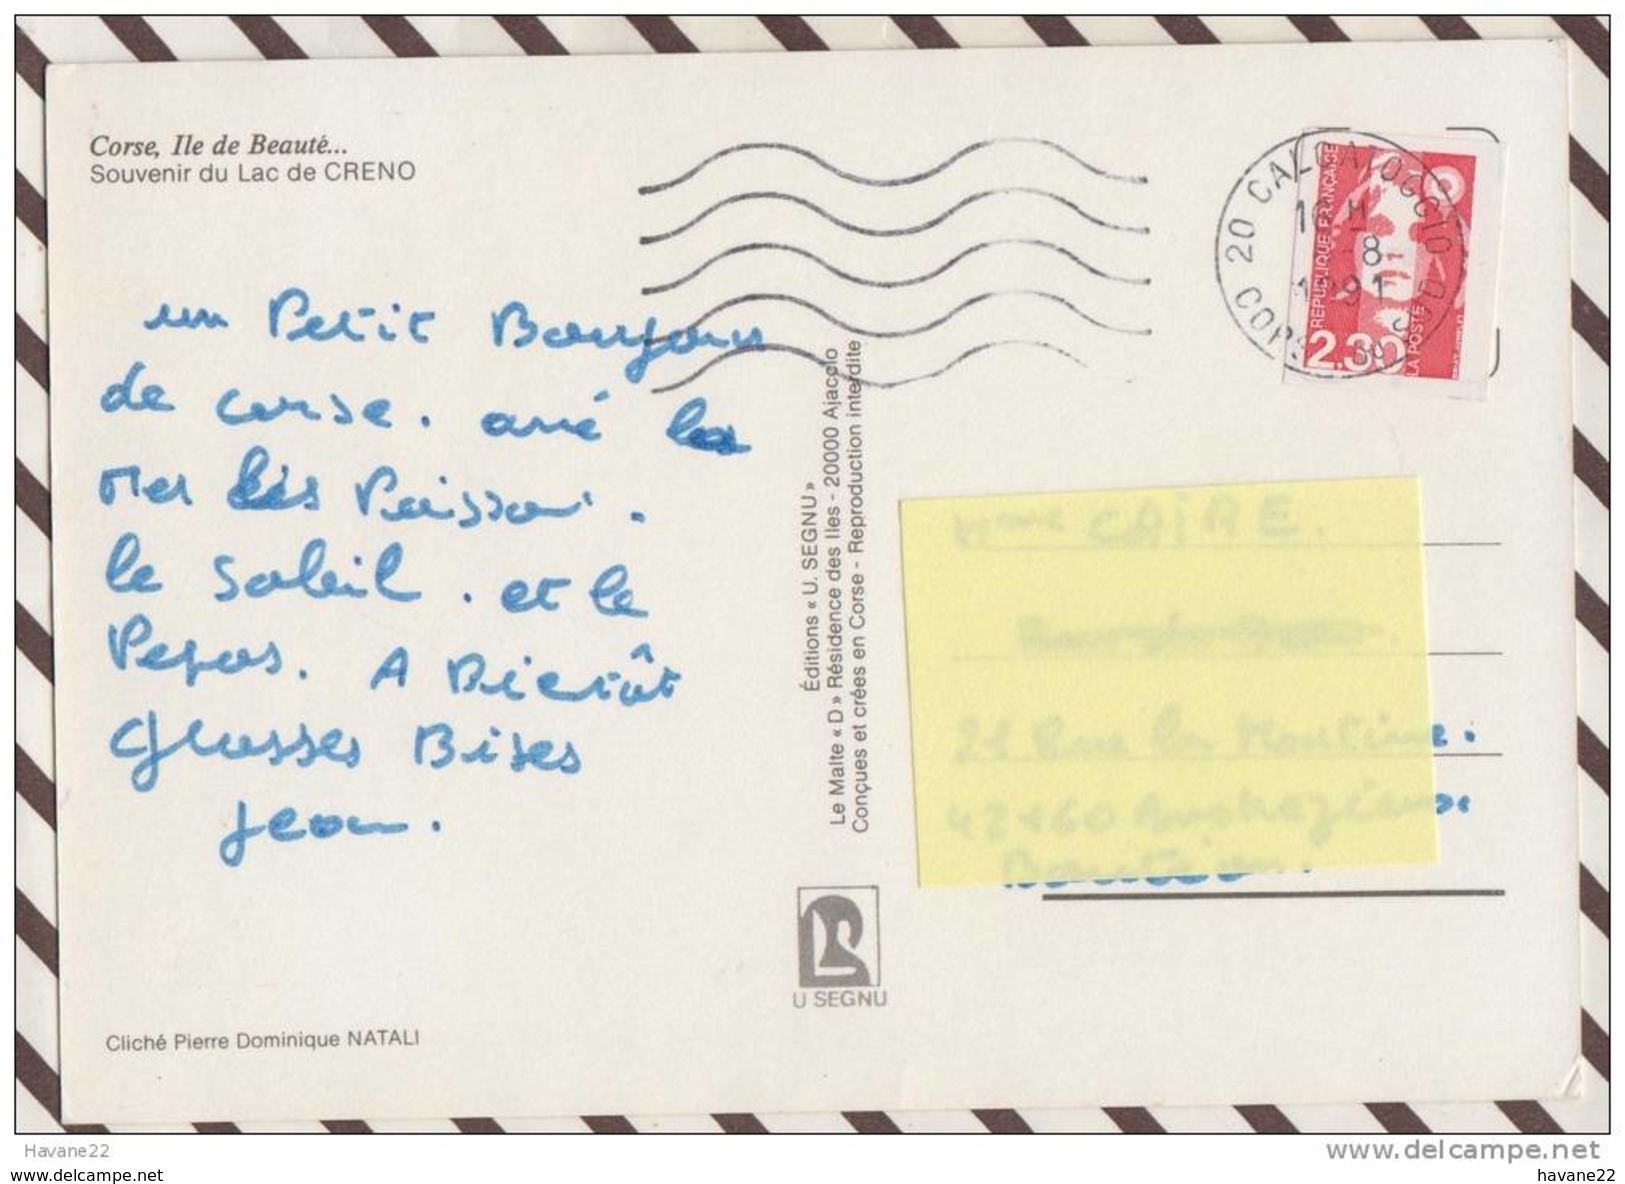 Corse, Ile de Beauté...
Souvenir du Lac de CRENO
un Petit Bonjour
de corse. avé la
Mer les Poisson.
le soleil. et le
Pepas. A Bientôt
Grosses Bises
Jean.
Cliché Pierre Dominique NATALI
Éditions « U. SEGNU »
Le Malte « D » Résidence des Iles - 20000 Ajaccio
Conçues et crées en Corse - Reproduction interdite
U SEGNU
20 CALCATOGGIO
CORSE DU SUD
16 H
-8
1991
REPUBLIQUE FRANCAISE
2.30
LA POSTE
Mme CAIRE.
21 Rue
42160
Bouthéon.
Havane22
delcampe.net
havane22
havane22